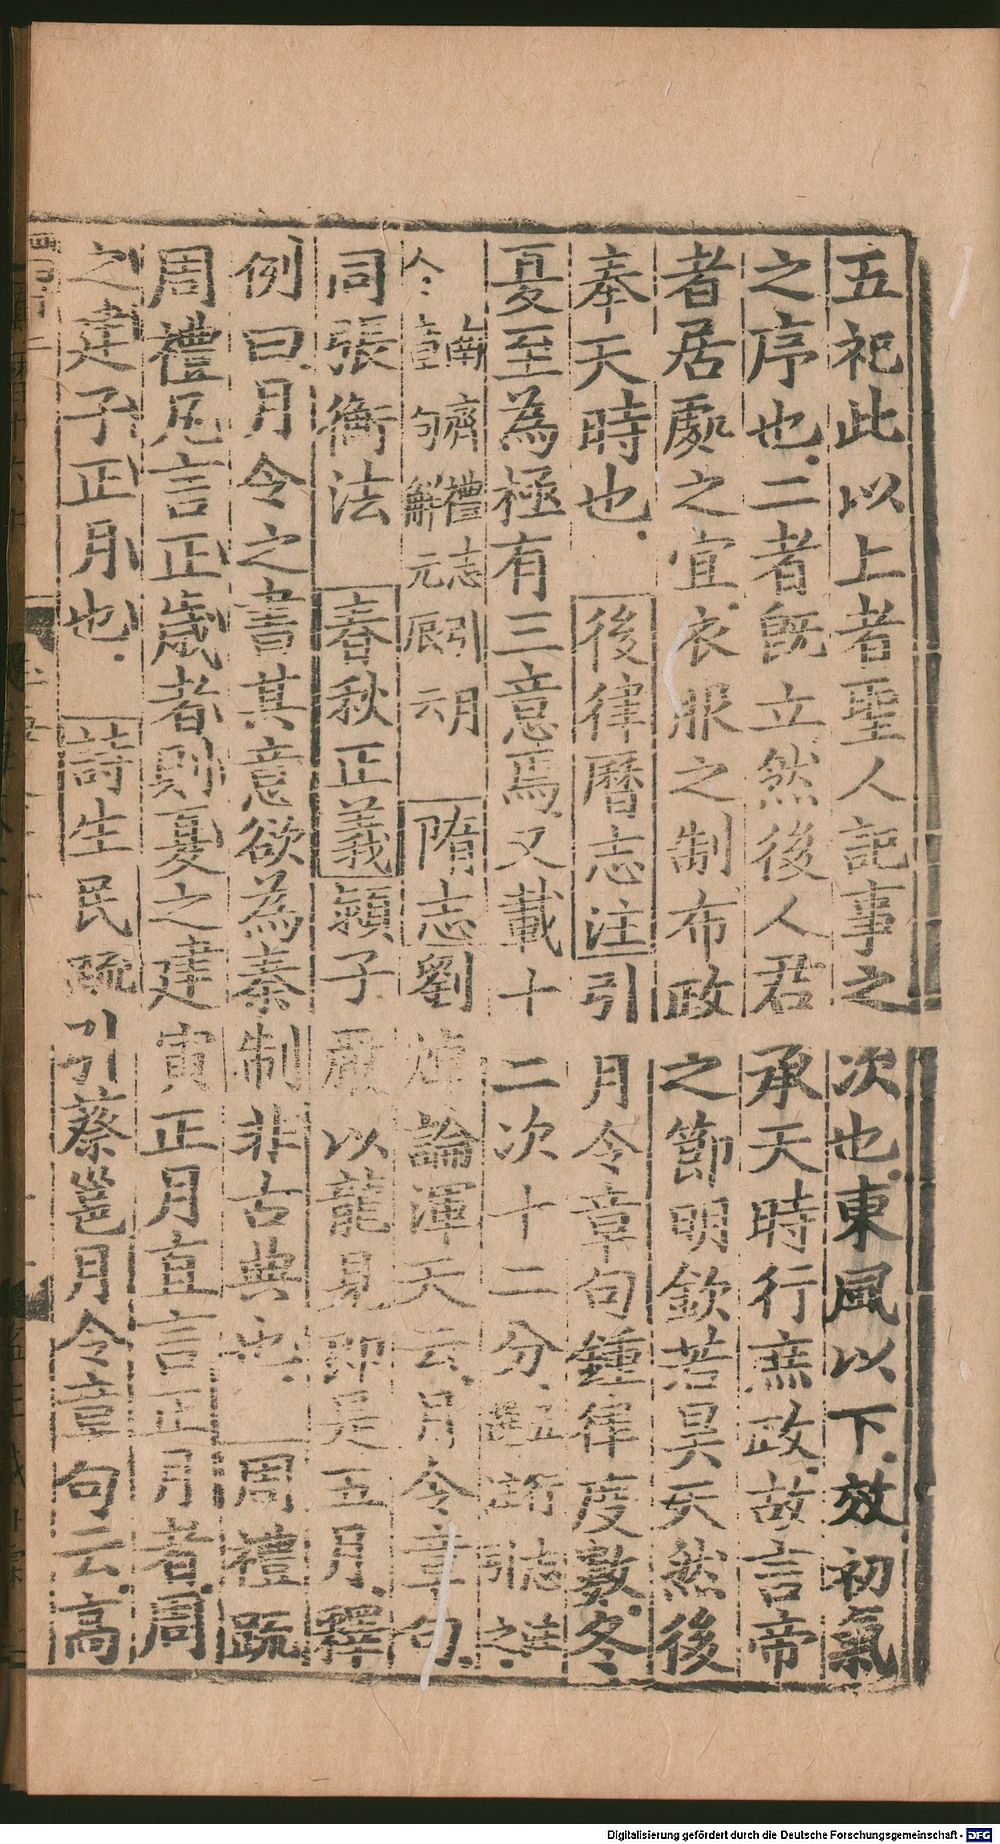 五祀此以上者聖人記事之次也東風以下效初氣
之序也二者既立然後人君承天時行庶政故言帝
者居處之宜衣服之制布政之節明欽若昊天然後
奉天時也 後律曆志注引月令章句鍾律度數冬
夏至為極有三意焉又載十二次十二分 志 之
令 南齊禮志引月 章句解元辰云 隋志劉焯論渾天云月令章句
同張衡法 春秋正義潁子嚴以龍見即是五月釋
例曰月令之書其意欲為秦制非古典也 周禮疏
周禮凡言正歲者則夏之建寅正月直言正月者周
之建子正月也 詩生民疏引蔡邕月令章句云高
Digitalisierung gefördert durch die Deutsche Forschungsgemeinschaft - DFG